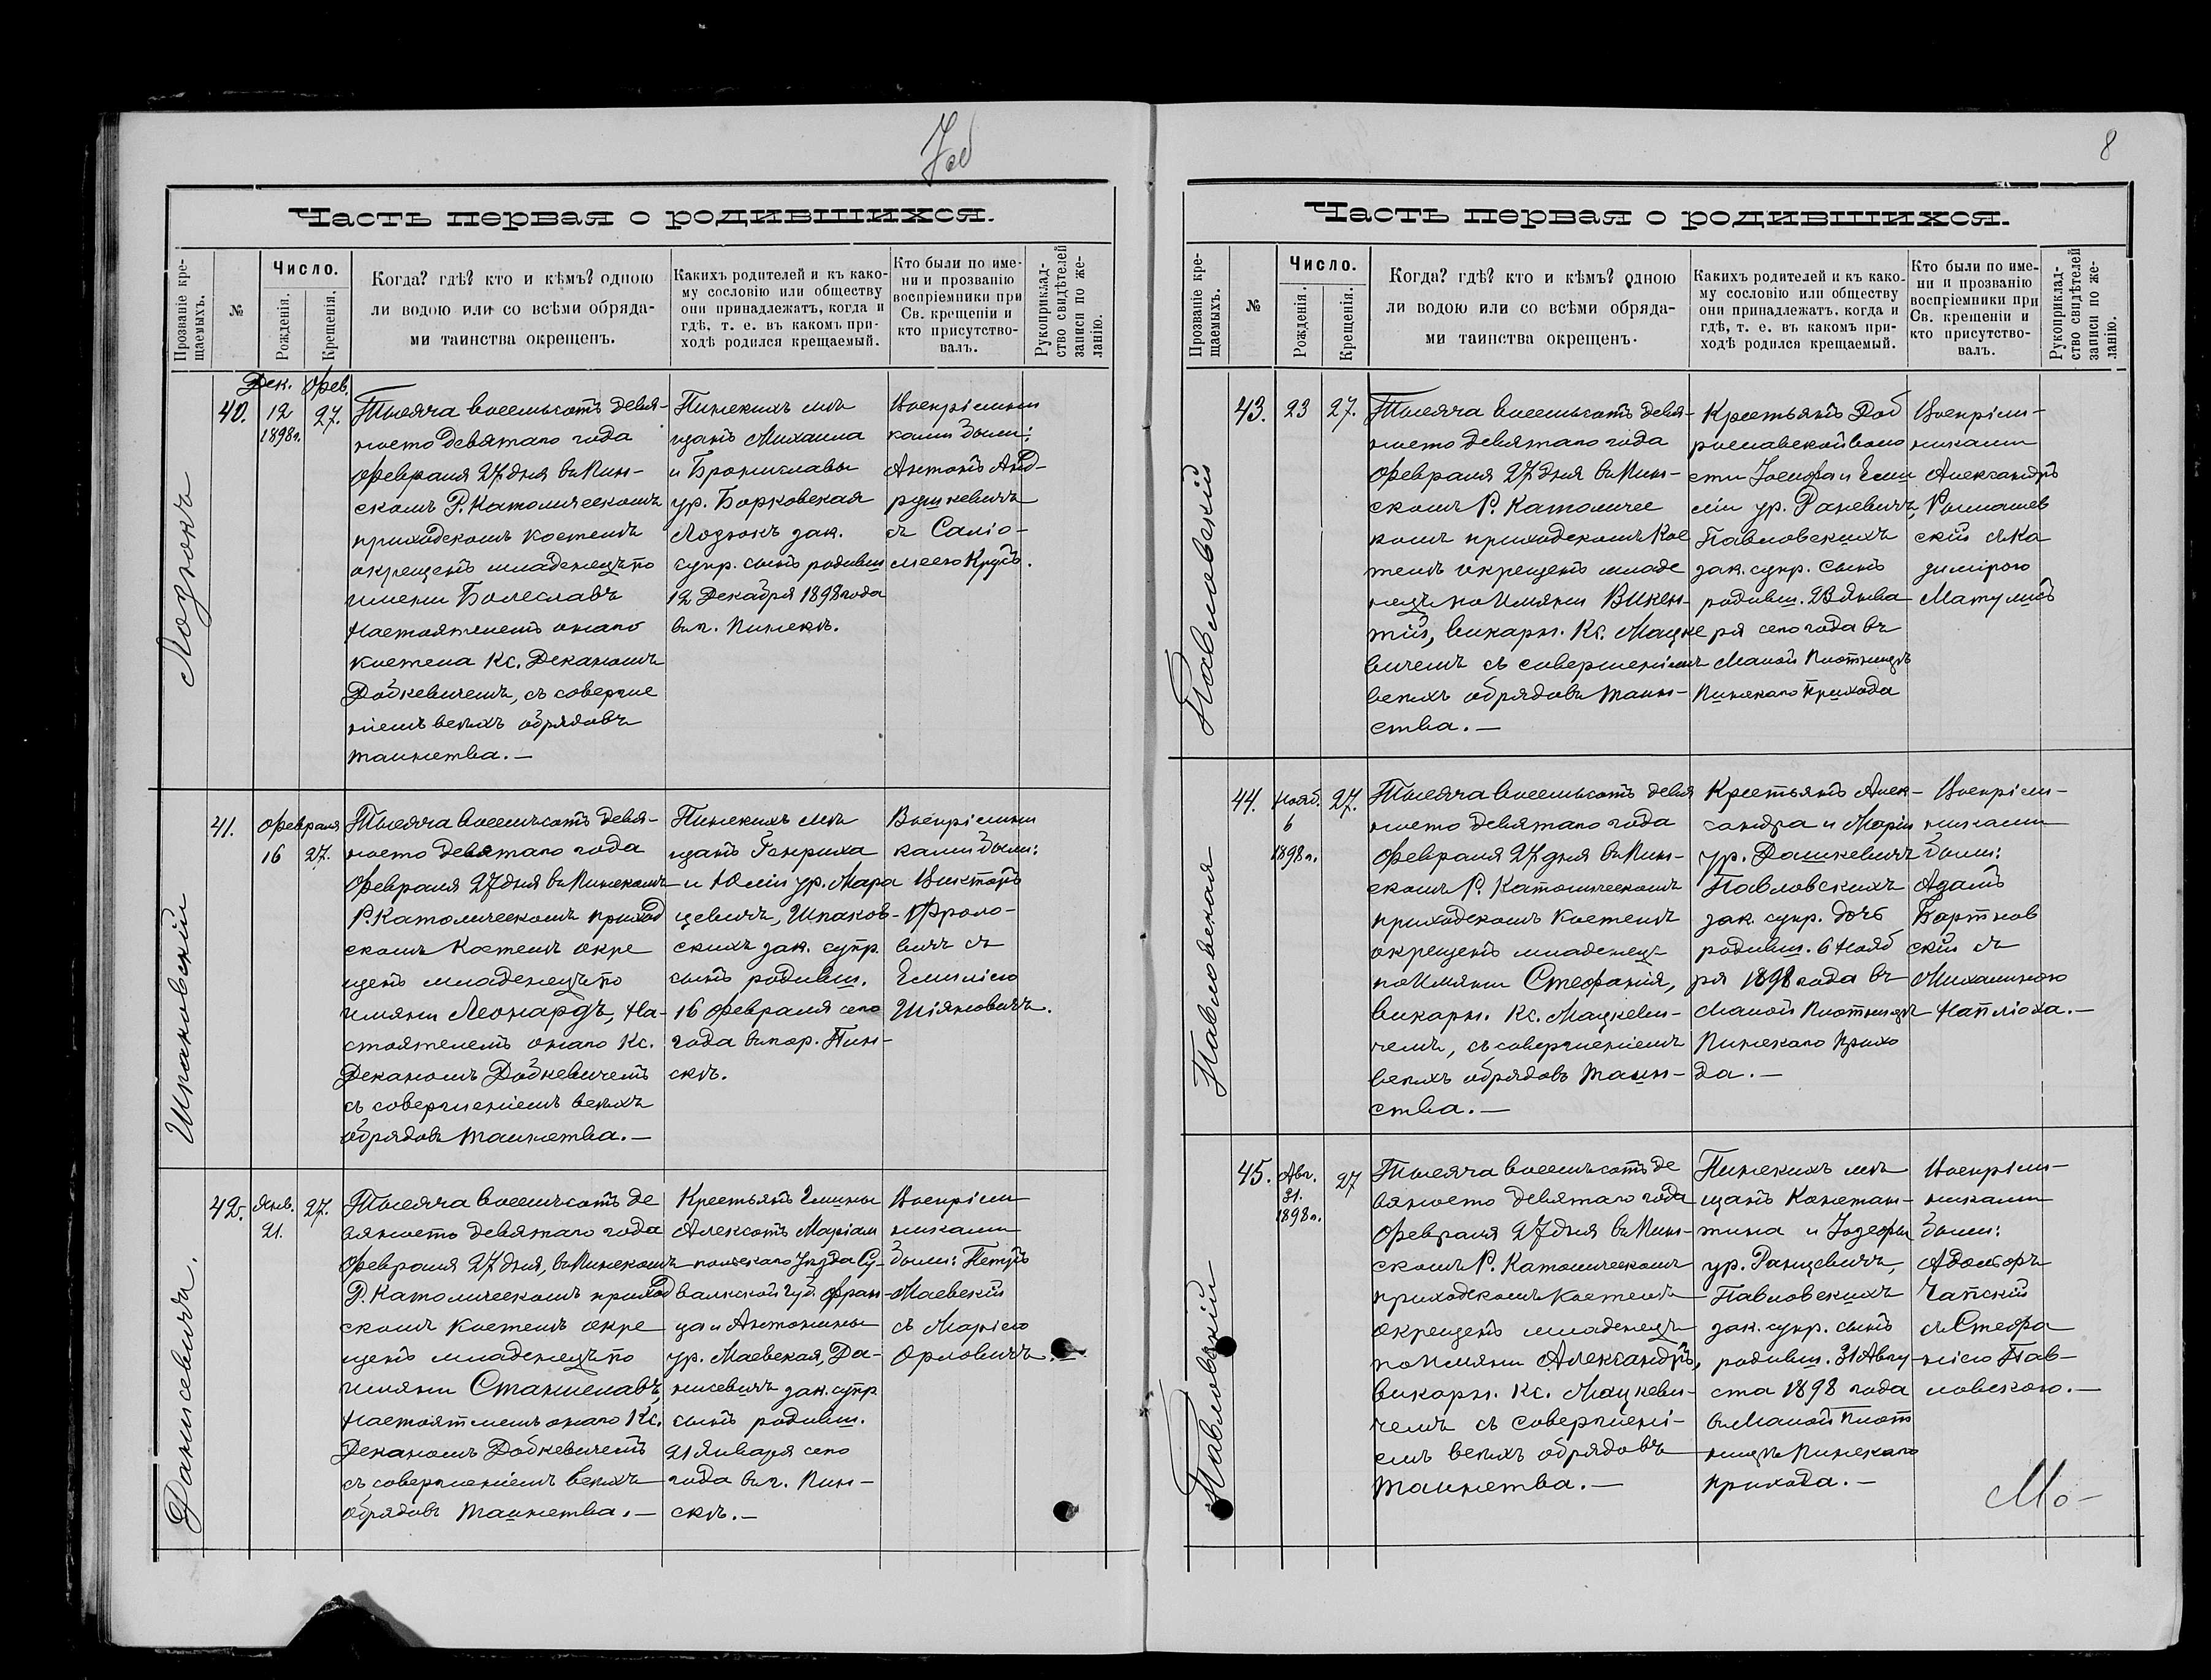 7об
Часть первая о родившихся.
Прозваніе кре-
щаемыхъ.
№
Число.
Рожденія.
Крещенія.
Когда? гдѣ? кто и кѣмъ? одною
ли водою или со всѣми обряда-
ми таинства окрещенъ.
Какихъ родителей и къ како-
му сословію или обществу
они принадлежатъ, когда и
гдѣ, т. е. въ какомъ при-
ходѣ родился крещаемый.
Кто были по име-
ни и прозванію
воспріемники при
Св. крещеніи и
кто присутство-
валъ.
Рукоприклад-
ство свидѣтелей
записи по же-
ланію.
Лозюкъ
40.
Дек.
12
1898 г.
Фев.
27.
Тысяча восемьсотъ девя-
носто девятаго года
Февраля 27 дня въ Пин-
скомъ Р. Католическомъ
приходскомъ костелѣ
окрещенъ младенецъ по
имени Болеславъ
Настоятелемъ онаго
костела Кс. Деканомъ
Добкевичемъ, съ соверше
ніемъ всѣхъ обрядовъ
таинства.—
Пинскихъ мѣ
щанъ Михаила
и Брониславы
ур. Борковская
Лозюкъ зак.
супр. сынъ родивш
12 Декабря 1898 года
въ г. Пинскѣ.
Воспріемни
ками были:
Антонъ Анд-
рушкевичъ
съ Саліо-
меею Крукъ.
Шпаковскій
41.
Февраля
16
27.
Тысяча восемьсотъ девя-
носто девятаго года
Февраля 27 дня въ Пинскомъ
Р. Католическомъ приход
скомъ костелѣ окре
щенъ младенецъ по
имяни Леонардъ, На-
стоятелемъ онаго Кс.
Деканомъ Добкевичемъ
съ совершеніемъ всѣхъ
обрядовъ таинства.—
Пинскихъ мѣ
щанъ Генриха
и Юліи ур. Мара
цевичъ, Шпаков-
скихъ зак. супр.
сынъ родивш.
16 Февраля сего
года въ гор. Пин-
скѣ.
Воспріемни
ками были:
Викторъ
Фроло-
вичъ съ
Емиліею
Шіяновичъ.
Данисевичъ.
42.
Янв.
21.
27.
Тысяча восемьсотъ де
вяносто девятаго года
Февраля 27 дня, въ Пинскомъ
Р. Католическомъ приход
скомъ костелѣ окре
щенъ младенецъ по
имяни Станиславъ,
Настоятелемъ онаго Кс.
Деканомъ Добкевичемъ
съ совершеніемъ всѣхъ
обрядовъ таинства.—
Крестьянъ Гмины
Алексотъ Маріам
польскаго Уѣзда Су-
валкской Губ. Фран-
ца и Антонины
ур. Маевская, Да-
нисевичъ зак. супр
сынъ родивш.
21 Января сего
года въ г. Пин-
скѣ.—
Воспріем
никами
были: Петръ
Маевскій
съ Маріею
Орловичъ.—
8
Часть первая о родившихся.
Прозваніе кре-
щаемыхъ.
№
Число.
Рожденія.
Крещенія.
Когда? гдѣ? кто и кѣмъ? одною
ли водою или со всѣми обряда-
ми таинства окрещенъ.
Какихъ родителей и къ како-
му сословію или обществу
они принадлежатъ, когда и
гдѣ, т. е. въ какомъ при-
ходѣ родился крещаемый.
Кто были по име-
ни и прозванію
воспріемники при
Св. крещеніи и
кто присутство-
валъ.
Рукоприклад-
ство свидѣтелей
записи по же-
ланію.
Павловскій
43.
23
27.
Тысяча восемьсотъ девя-
носто девятаго года
Февраля 27 дня въ Пин-
скомъ Р. Католичес
комъ приходскомъ Кос
телѣ окрещенъ младе
нецъ по Имяни Викен-
тій, викарн. Кс. Мацке
вичемъ съ совершеніемъ
всѣхъ обрядовъ таин-
ства.—
Крестьянъ Доб
рославской воло
сти Іосифа и Еми
ліи ур. Раневичъ,
Павловскихъ
зак. супр. сынъ
родивш. 23 Янва
ря сего года въ
Малой Плотницѣ
Пинскаго Прихода
Воспріем-
никами
Александръ
Ромашев
скій съ Ка
зимірою
Матулисъ
Павловская
44.
Нояб.
6
1898 г.
27.
Тысяча восемьсотъ девя
носто девятаго года
Февраля 27 дня въ Пин-
скомъ Р. Католическомъ
приходскомъ Костелѣ
окрещенъ младенец-
по Имяни Стефанія,
викарн. Кс. Мацкеви-
чемъ, съ совершеніемъ
всѣхъ обрядовъ таин-
ства.—
Крестьянъ Алек-
сандра и Маріи
ур. Дашкевичъ
Павловскихъ
зак. супр. дочь
родивш. 6 Нояб
ря 1898 года въ
Малой Плотницѣ
Пинскаго Прихо
да.—
Воспріем-
никами
были:
Адамъ
Бортнов
скій съ
Михалиною
Наплюха.—
Павловскій
45.
Авг.
31.
1898 г.
27
Тысяча восемьсотъ де
вяносто девятаго года
Февраля 27 дня въ Пин-
скомъ Р. Католическомъ
приходскомъ костелѣ
окрещенъ младенецъ
по Имяни Александръ,
викарн. Кс. Мацкеви-
чемъ съ совершені-
емъ всѣхъ обрядовъ
таинства.—
Пинскихъ мѣ
щанъ Констан-
тина и Іозефы
ур. Ранцевичъ,
Павловскихъ
зак. супр. сынъ
родивш. 31 Авгу-
ста 1898 года
въ Малой Плот
ницѣ Пинскаго
прихода.—
Воспріем-
никами
были:
Адольфъ
Чапскій
съ Стефа
ніею Пав-
ловскою.—
Мо-